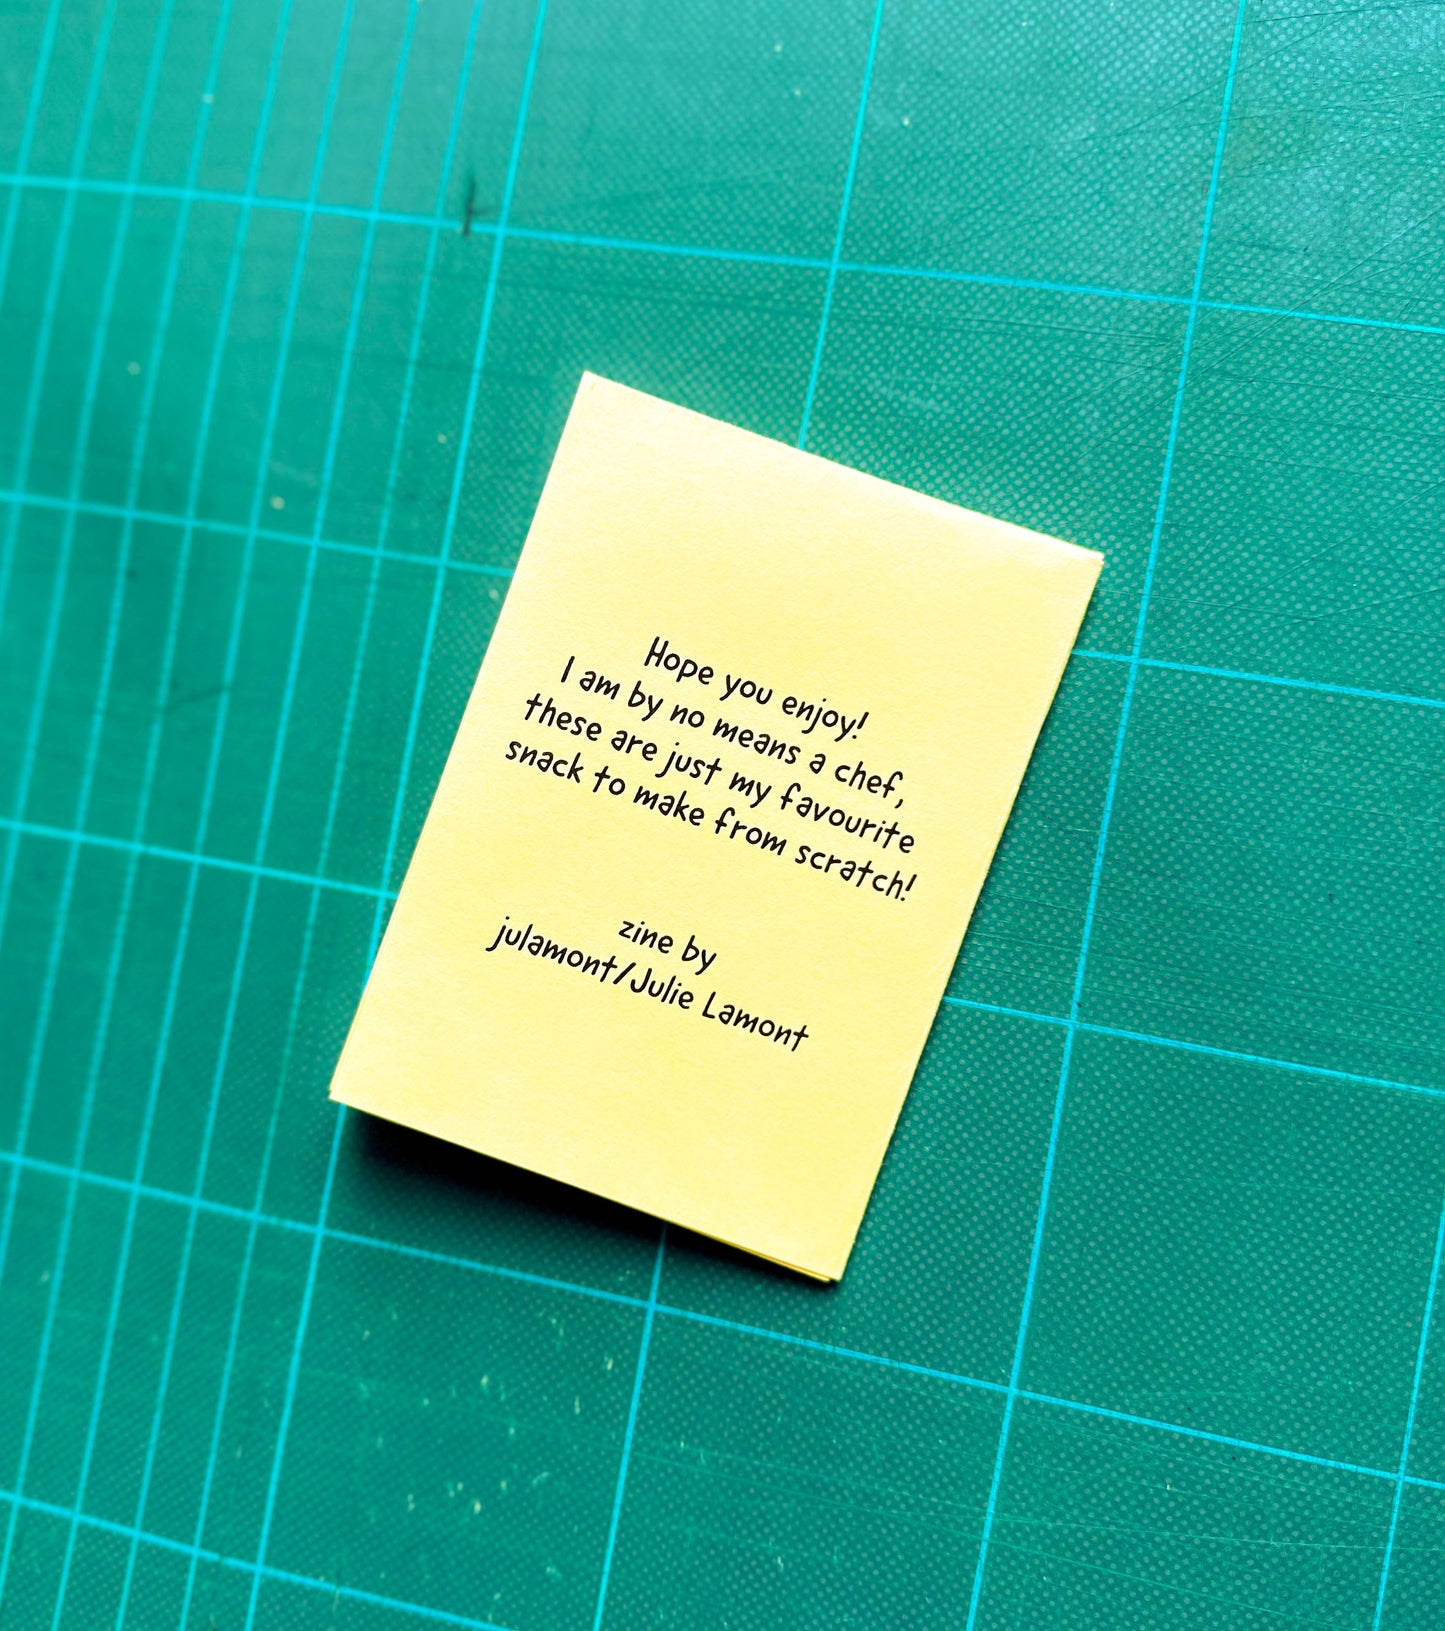 Hope you enjoy!
I am by no means a chef,
these are just my favourite
snack to make from scratch!
zine by
julamont/Julie Lamont